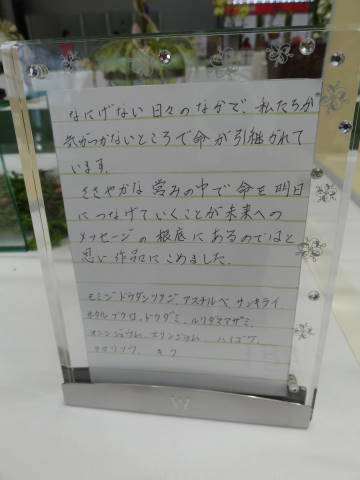 なにげない日々のなかで、私たちが
気がつかないところで命が引継がれて
います。
ささやかな営みの中で命を明日
につなげていくことが未来への
メッセージの根底にあるのではと
思い作品にこめました。
モミジ ドウダンツツジ、アスナルベ、サンキライ
ホタルブクロ、ドクダミ、ルリタマアザミ、
エリンジウム、ハイゴケ、
キク
W